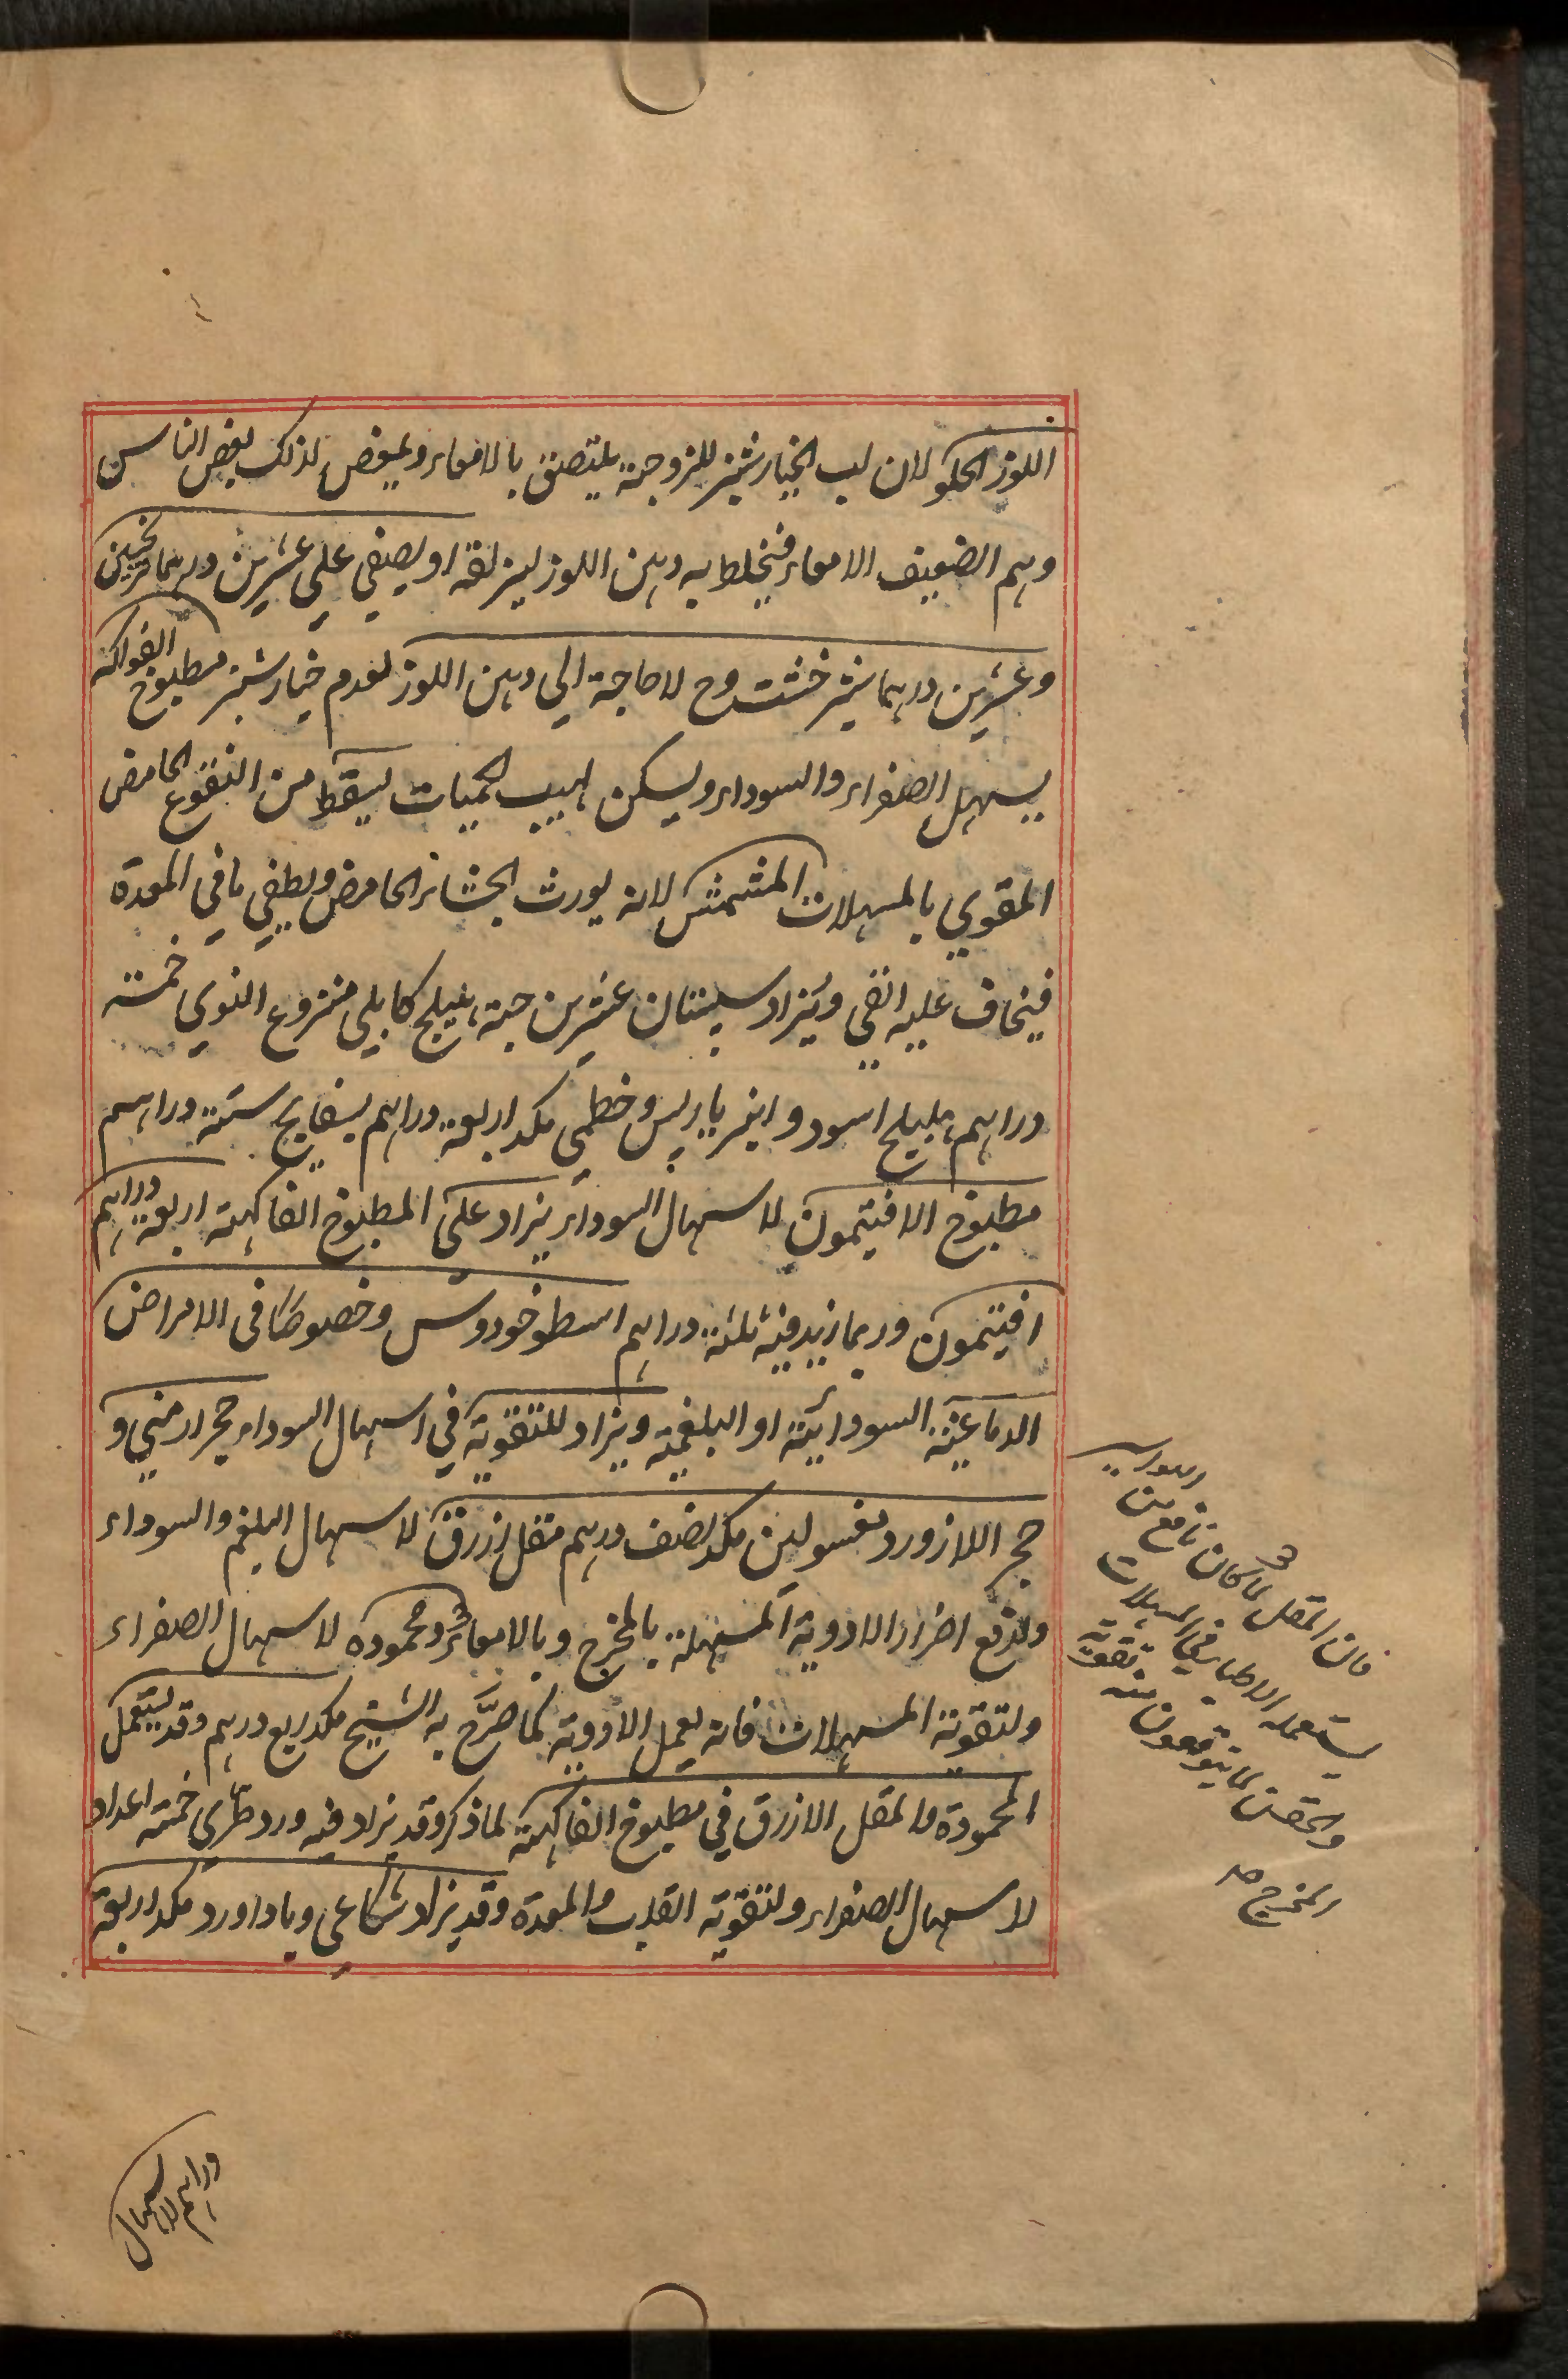 اللوز الحلو لان لب الخيارشنبر للزوجته يلتصق بالامعاء ويمغص لذلك بعض الناس
وهم الضعيف الامعاء فيخلط به دهن اللوز ليزلقه او يصفي علي عشرين درهما ترنجبين
وعشرين درهما شيرخشت وح لا حاجة الي دهن اللوز لعدم خيارشنبر مطبوخ الفواكه
يسهل الصفراء والسوداء ويسكن لهيب الحميات يسقط من النقوع الحامض
المقوي بالمسهلات المشمش لانه يورث الجشاء الحامض ويطفي ما في المعدة
فيخاف عليه القي ويزاد سپستان عشرين حبة هليلج كابلي منزوع النوي خمسة
دراهم هليلج اسود وانبرباريس وخطمي مكد اربعة دراهم بسفايج ستة دراهم
مطبوخ الافتيمون لاسهال السوداء يزاد علي المطبوخ الفاكهة اربعة دراهم
افتيمون وربما زيد فيه ثلثة دراهم اسطوخودوس وخصوصا في الامراض
الدماغية السودائية او البلغمية ويزاد للتقوية في اسهال السوداء حجر ارمني و
حجر اللازورد مغسولين مكد نصف درهم مقل ازرق لاسهال البلغم والسوداء
ولدفع اضرار الادوية المسهلة بالمخرج وبالامعاء ومحموده لاسهال الصفراء
ولتقوية المسهلات فانه يعمل الادوية كما صرّح به الشيخ مكد ربع درهم وقد يستعمل
المحمودة والمقل الازرق في مطبوخ الفاكهة لما ذكر وقد يزاد فيه ورد طري خمسة اعداد
لاسهال الصفراء ولتقوية القلب والمعدة وقد يزاد شكاعي وباداورد مكد اربعة
فان المقل لما كان نافع من
يستعمله الاطبا في المسهلات
والحقن لما يتوقعون منه تقوية
المخرج
دراهم لاسهال